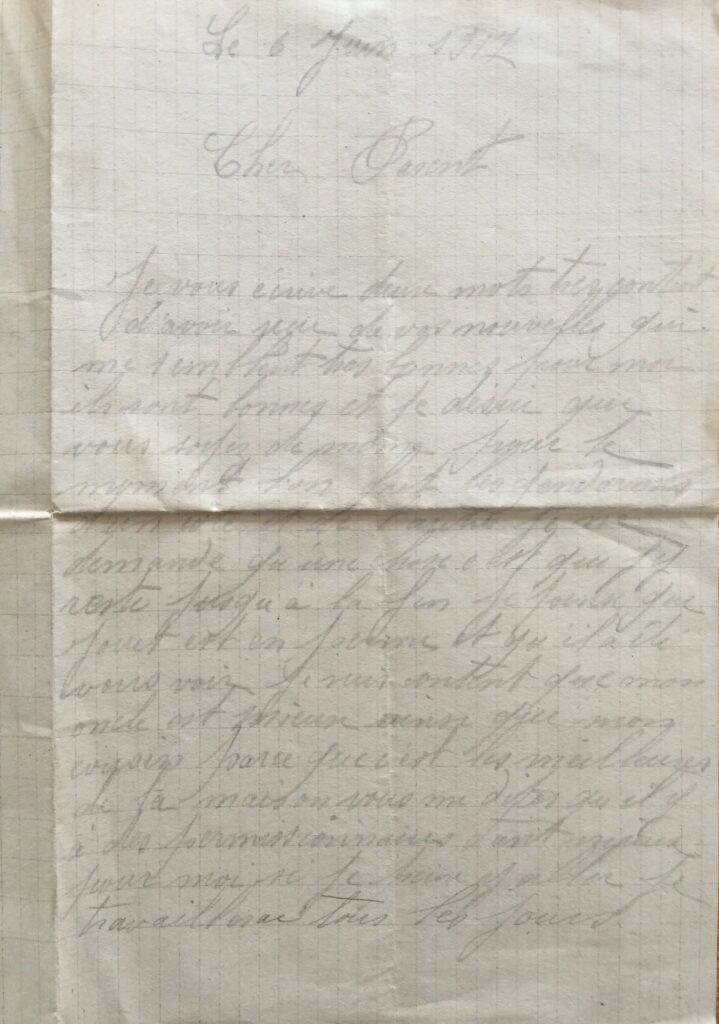 Le 6 Juin 1917
Cher Parent
Je vous écrive deux mots très content
d'avoir reçue de vos nouvelles qui
me semblent très bonnes pour moi
ils sont bonnes et je désire que
vous soyez de même pour le
moment
demande qu'une chose c'est que j'y
reste jusqu'à la fin je pense que
est en et qu'il a été
vous voir Je suis content que mon
oncle est mieux ainsi que mon
cousin parce que c'est les meilleures
de la maison vous me dites qu'il y
à des permissionnaires tant mieux
pour moi si je peux y aller je
travaillerae tous les jours